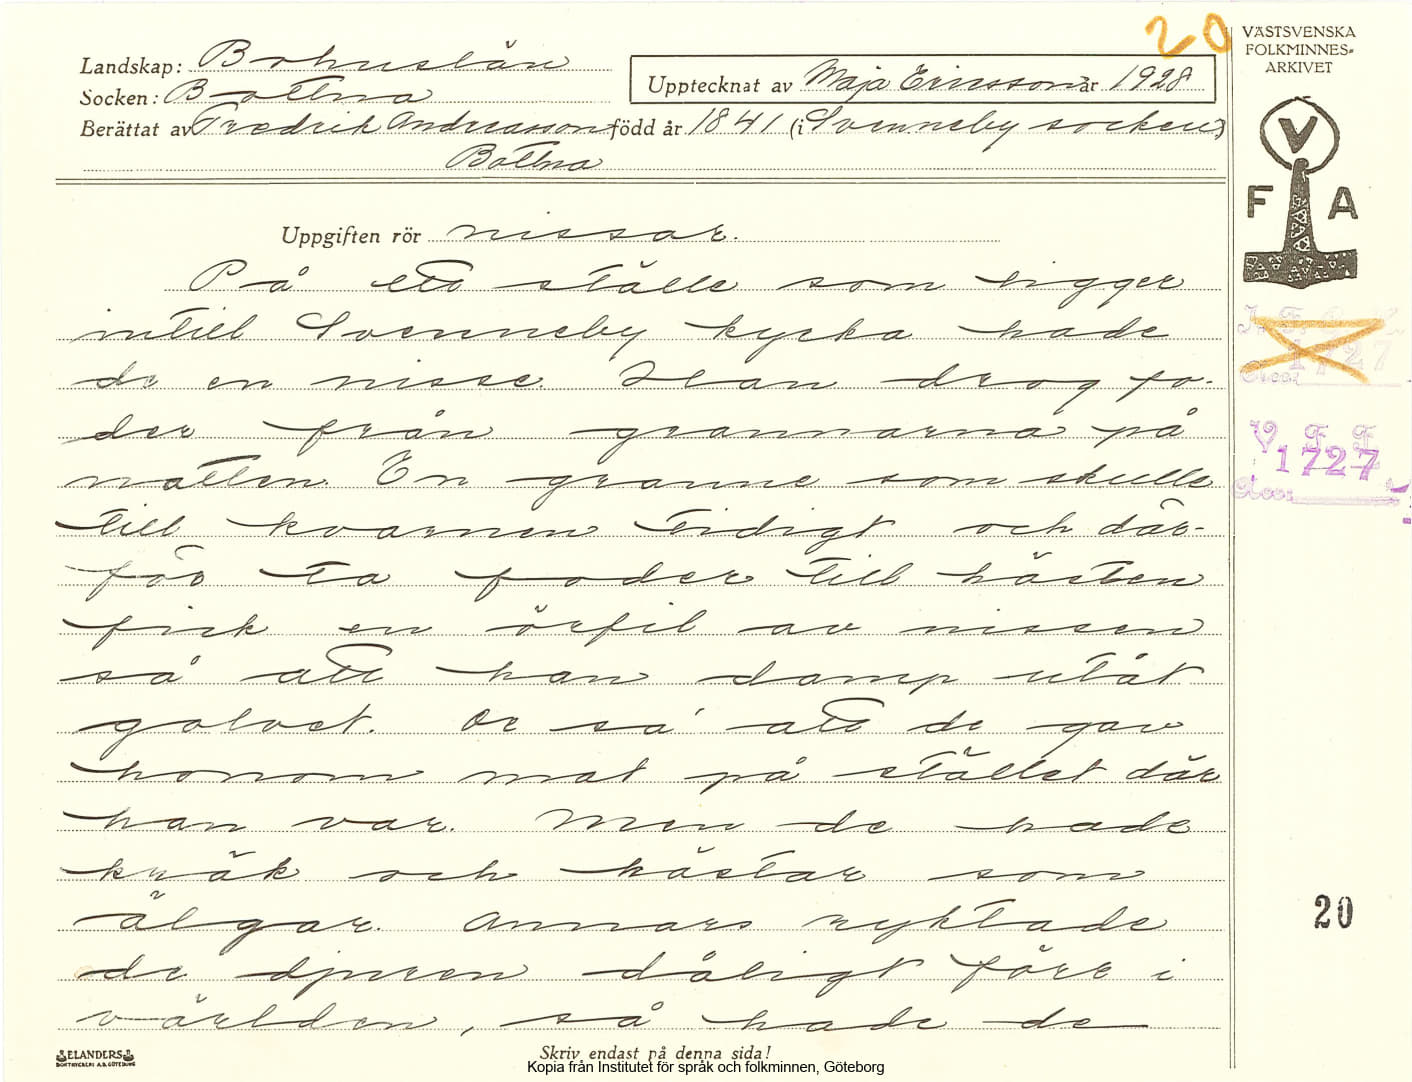 20
VÄSTSVENSKA
FOLKMINNES=
ARKIVET
Landskap: Bohuslän
Upptecknat av Maja Ericsson år 1928
Socken: Bottna
Berättat av Fredrik Andreasson född år 1841 (i Svenneby socken)
Bottna
V
F A
Uppgiften rör nissar.
På ett ställe som ligger
intill Svenneby kyrka hade
de en nisse. Han drog fo-
der från grannarna på
natten. En granne som skulle
till kvarnen tidigt och där-
för ta foder till hästen
fick en örfil av nissen
så att han damp utåt
golvet. De sa' att de gav
honom mat på stället där
han var. Men de hade
kräk och hästar som
älgar. Annars ryktade
de djuren dåligt förr i
världen, så hade de
1727
Acc:
V F F
1727
Acc:
20
ELANDERS
BOKTRYCKERI A.B. GÖTEBORG
Skriv endast på denna sida!
Kopia från Institutet för språk och folkminnen, Göteborg